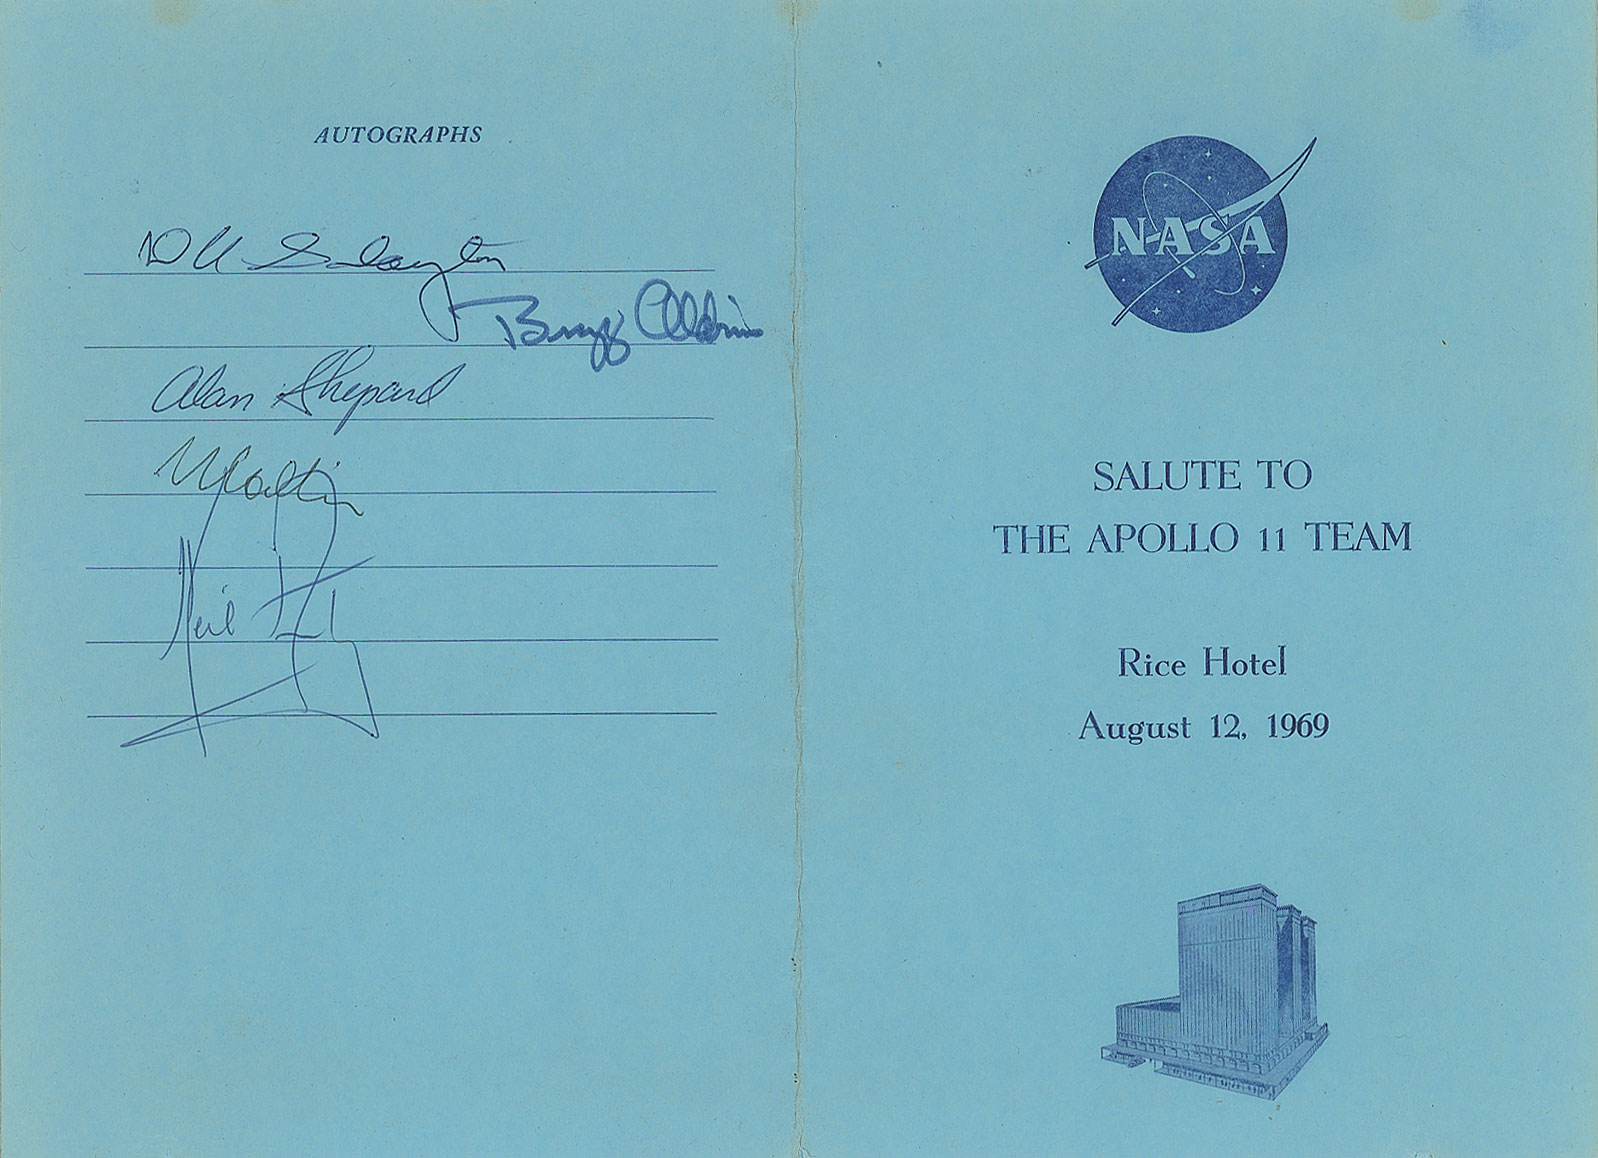 AUTOGRAPHS
D K Slayton
Buzz Aldrin
Alan Shepard
Neil
NASA
SALUTE TO
THE APOLLO 11 TEAM
Rice Hotel
August 12, 1969